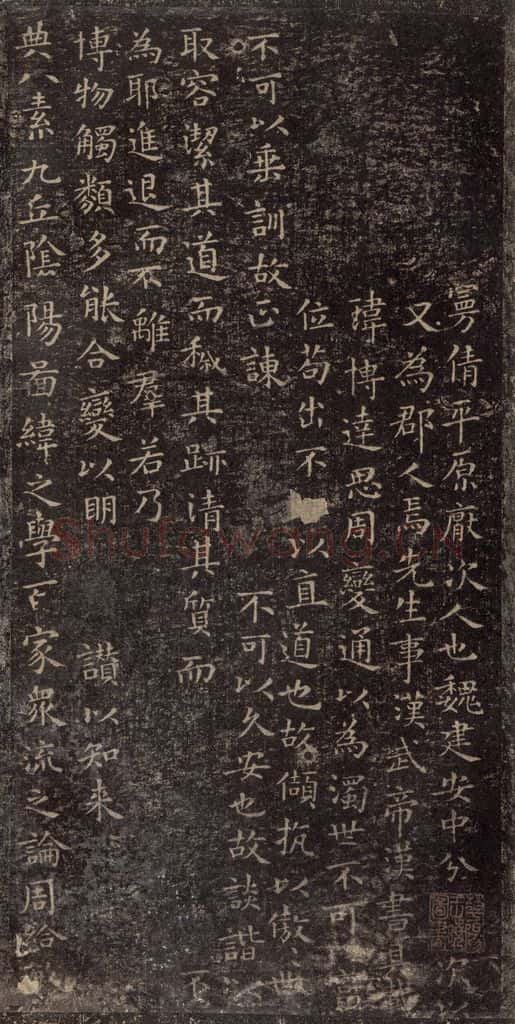 曼倩平原厭次人也魏建安中分次以
又為郡人焉先生事漢武帝漢書具
瑋博達思周變通以為濁世不可富
位苟出不以直道也故頡抗以傲世
不可以垂訓故正諫不可以久安也故談諧以
取容潔其道而穢其跡清其質而
為耶進退而不離羣若乃
博物觸類多能合變以明讃以知来
典八素九丘陰陽啚緯之學百家衆流之論周給敏
Shufawang.CN